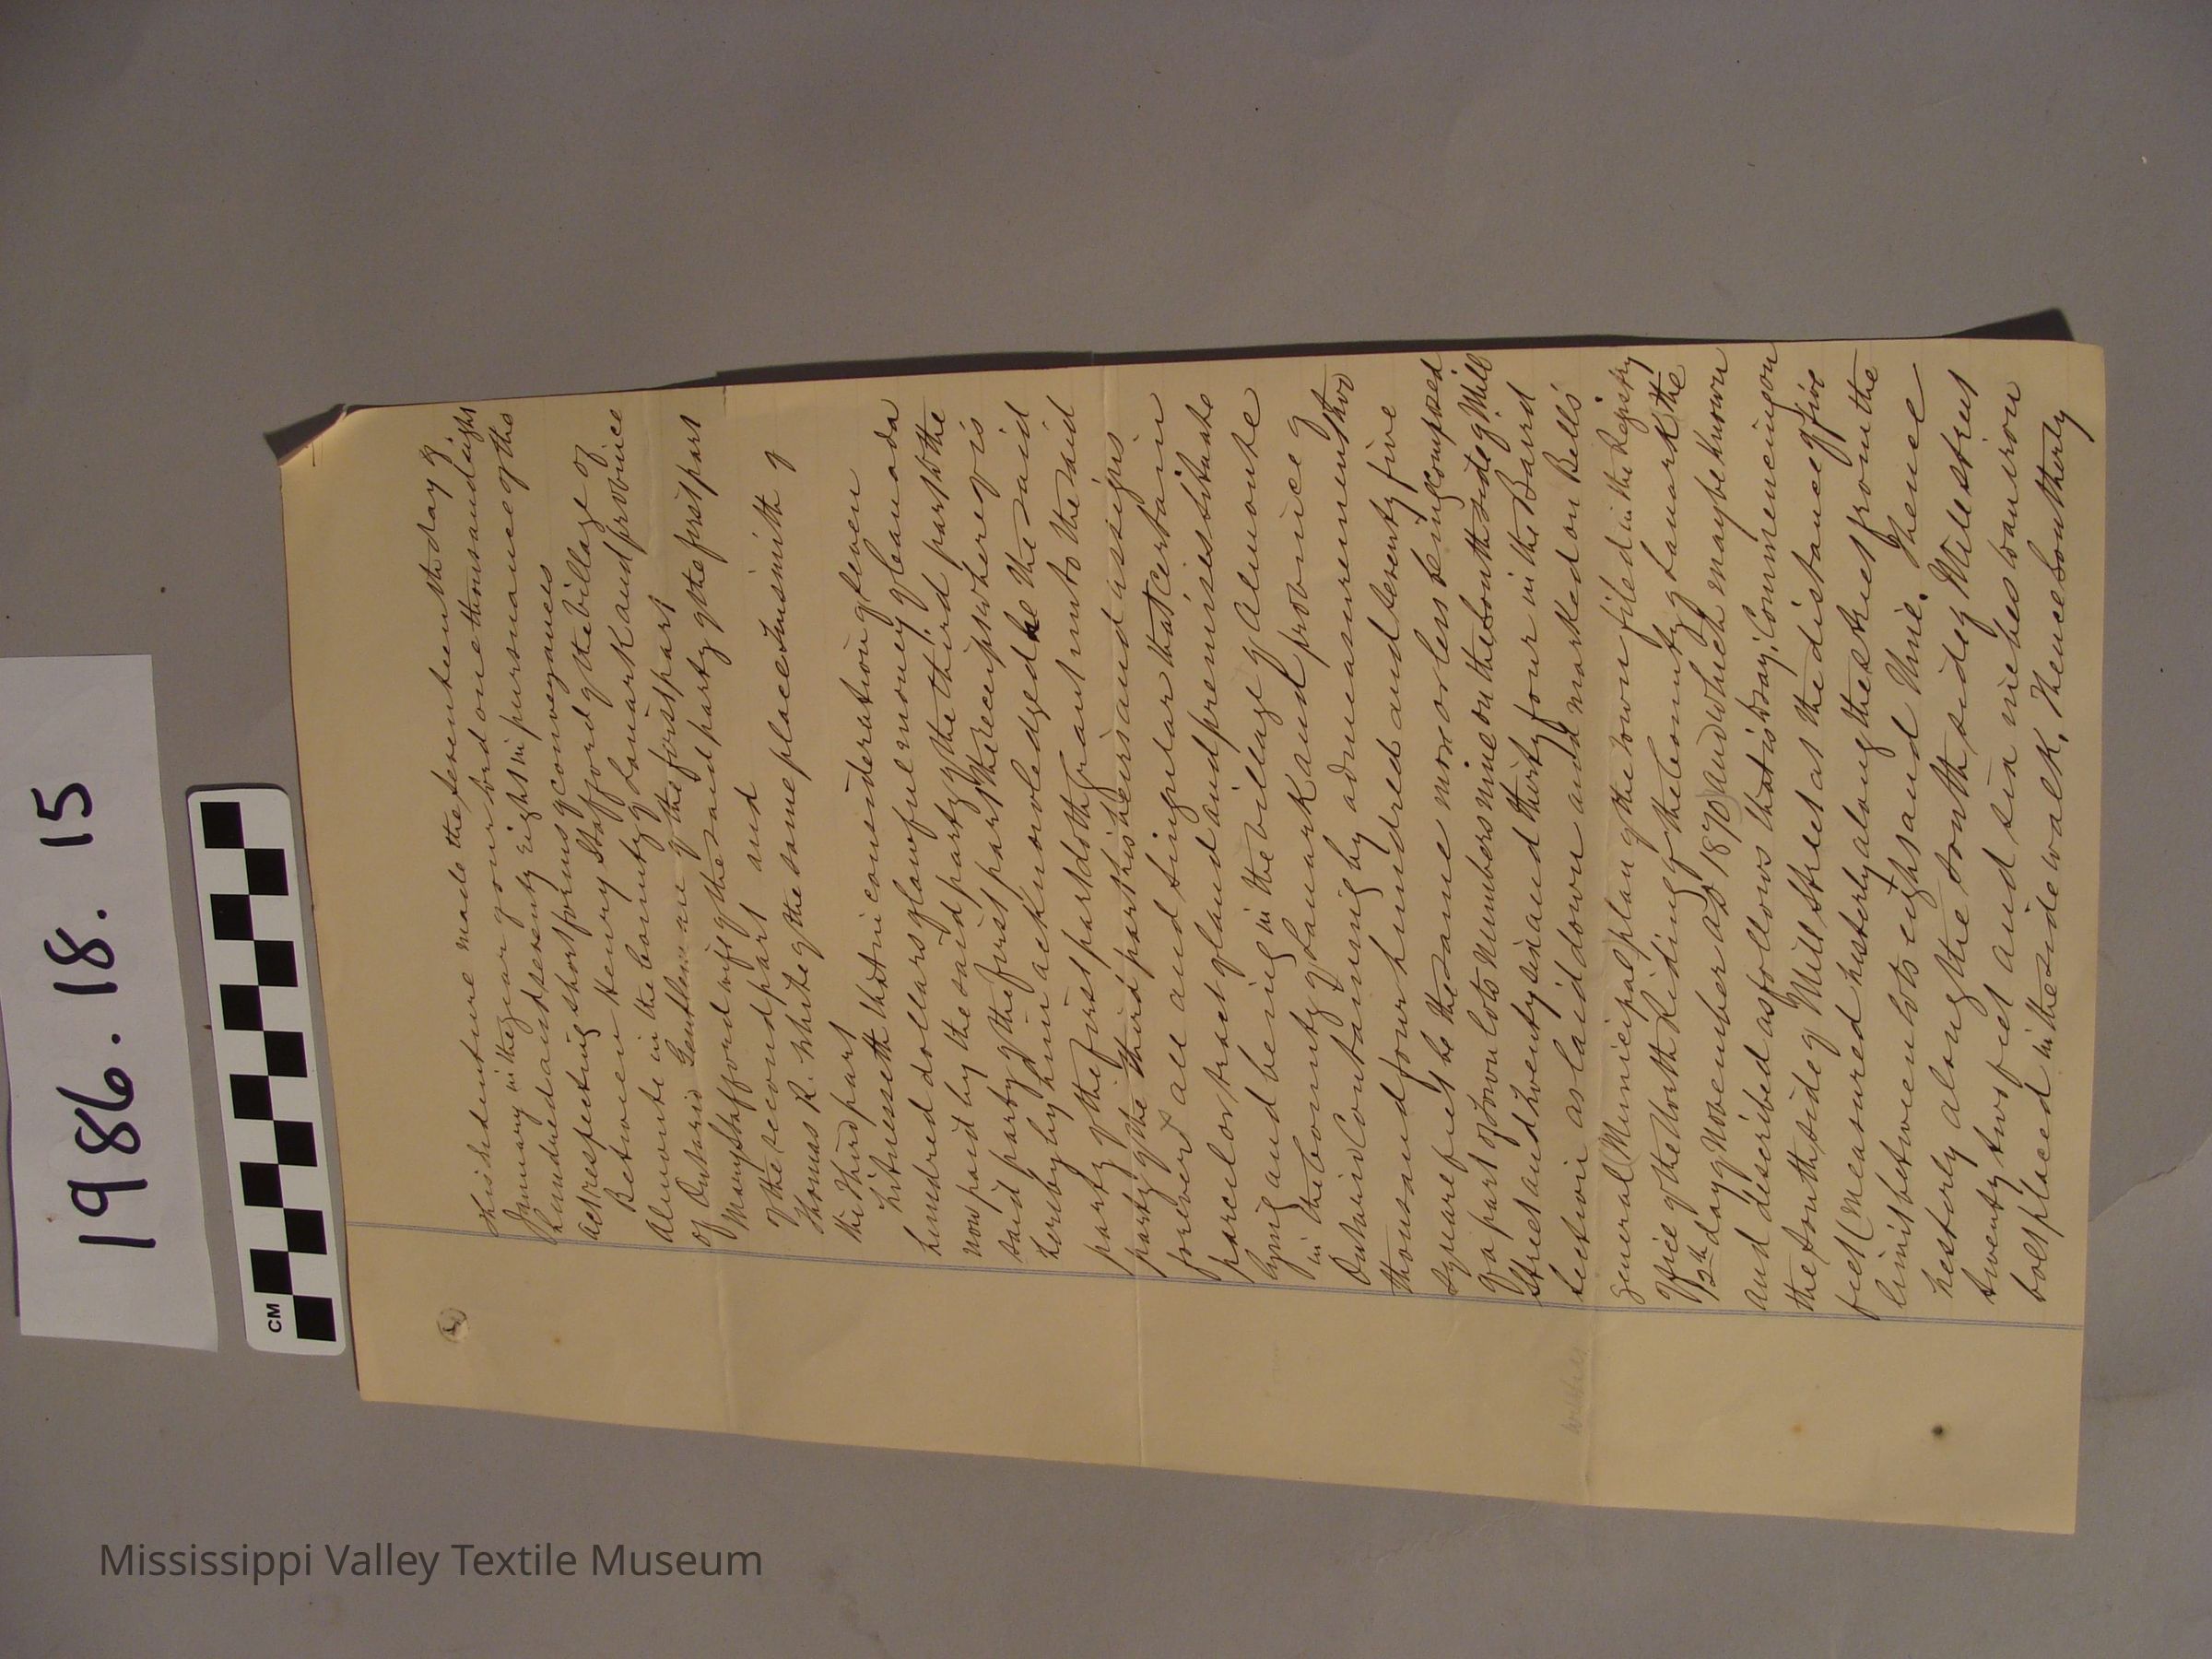 1986.18.15
CM
This Indenture made the seventeenth day of
January in the year of our Lord one thousand eight
hundred and seventy eight in pursuance of the
act respecting short forms of conveyances
Between Henry Stafford of the village of
Almonte in the County of Lanark and province
of Ontario Gentleman of the first part
Mary Stafford wife of the said party of the first part
of the second part and
Thomas R. White of the same place Tinsmith of
the Third part
Witnesseth that in consideration of seven
hundred dollars of lawful money of Canada
now paid by the said party of the third part to the
said party of the first part the receipt whereof is
hereby by him acknowledged he the said
party of the first part doth grant unto the said
party of the third part his heirs and assigns
forever all and singular that certain
parcel or tract of land and premises situate
lying and being in the village of Almonte
in the County of Lanark and province of
Ontario Containing by admeasurement two
thousand four hundred and seventy five
square feet be the same more or less being composed
of a part of Town lots numbers nine on the South side of Mill
Street and twenty six and thirty four in the Baird
section as laid down and marked on Bells
general Municipal plan of the town filed in the Registry
office of the North Riding of the County of Lanark the
12th day November AD 1870 and which may be known
and described as follows that is to say, Commencing on
the south side of Mill Street at the distance of five
feet (measured westerly along the street from the
limit between lots eight and nine. Thence
westerly along the south side of Mill street
twenty two feet and six inches to an iron
bolt placed in the side walk, Thence Southerly
Mississippi Valley Textile Museum